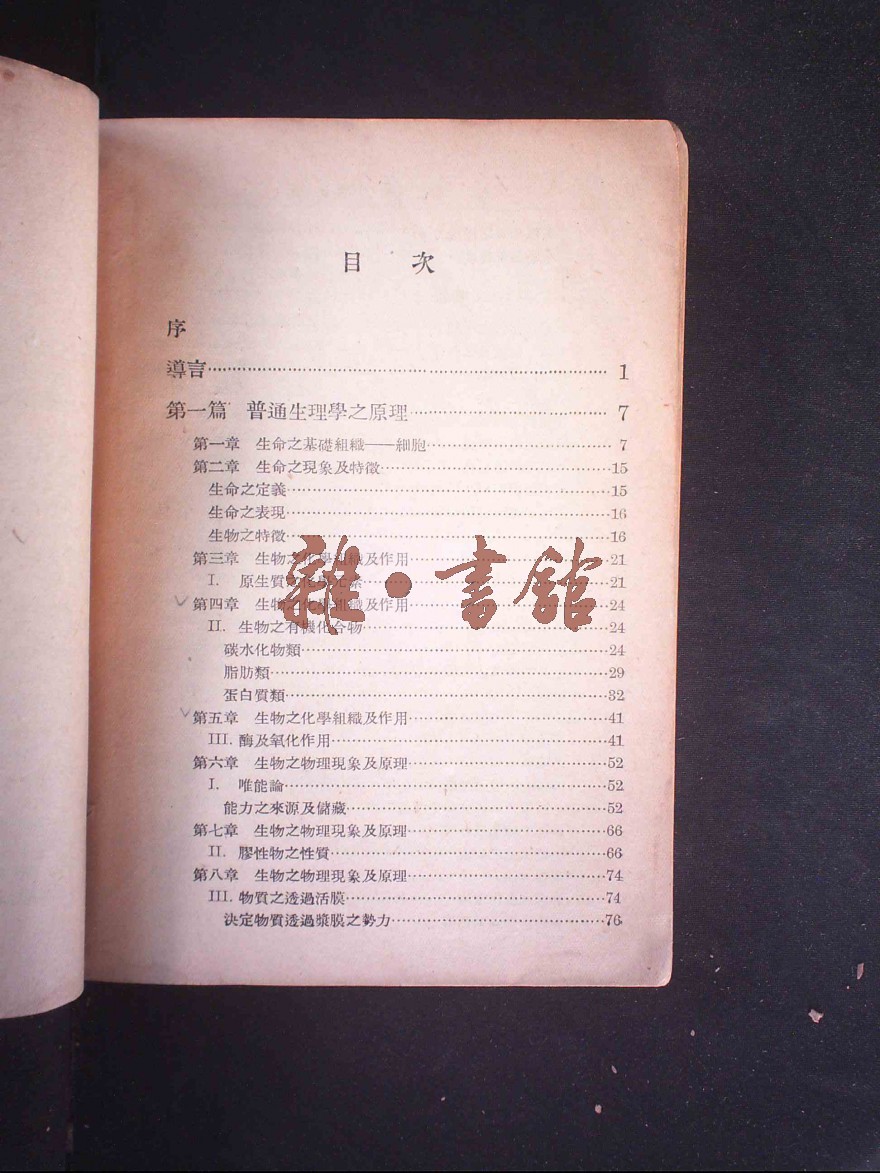 目 次
序
導言…………………………………………………………1
第一篇 普通生理學之原理…………………………7
第一章 生命之基礎組織——細胞…………………………7
第二章 生命之現象及特徵…………………………………15
生命之定義…………………………………………………15
生命之表現…………………………………………………16
生物之特徵…………………………………………………16
第三章 生物之化學組織及作用……………………………21
I. 原生質之化學元素………………………………………21
第四章 生物之化學組織及作用……………………………24
II. 生物之有機化合物………………………………………24
碳水化物類…………………………………………………24
脂肪類………………………………………………………29
蛋白質類……………………………………………………32
第五章 生物之化學組織及作用……………………………41
III. 酶及氧化作用……………………………………………41
第六章 生物之物理現象及原理……………………………52
I. 唯能論……………………………………………………52
能力之來源及儲藏…………………………………………52
第七章 生物之物理現象及原理……………………………66
II. 膠性物之性質……………………………………………66
第八章 生物之物理現象及原理……………………………74
III. 物質之透過活膜…………………………………………74
決定物質透過漿膜之勢力…………………………………76
雜·書館